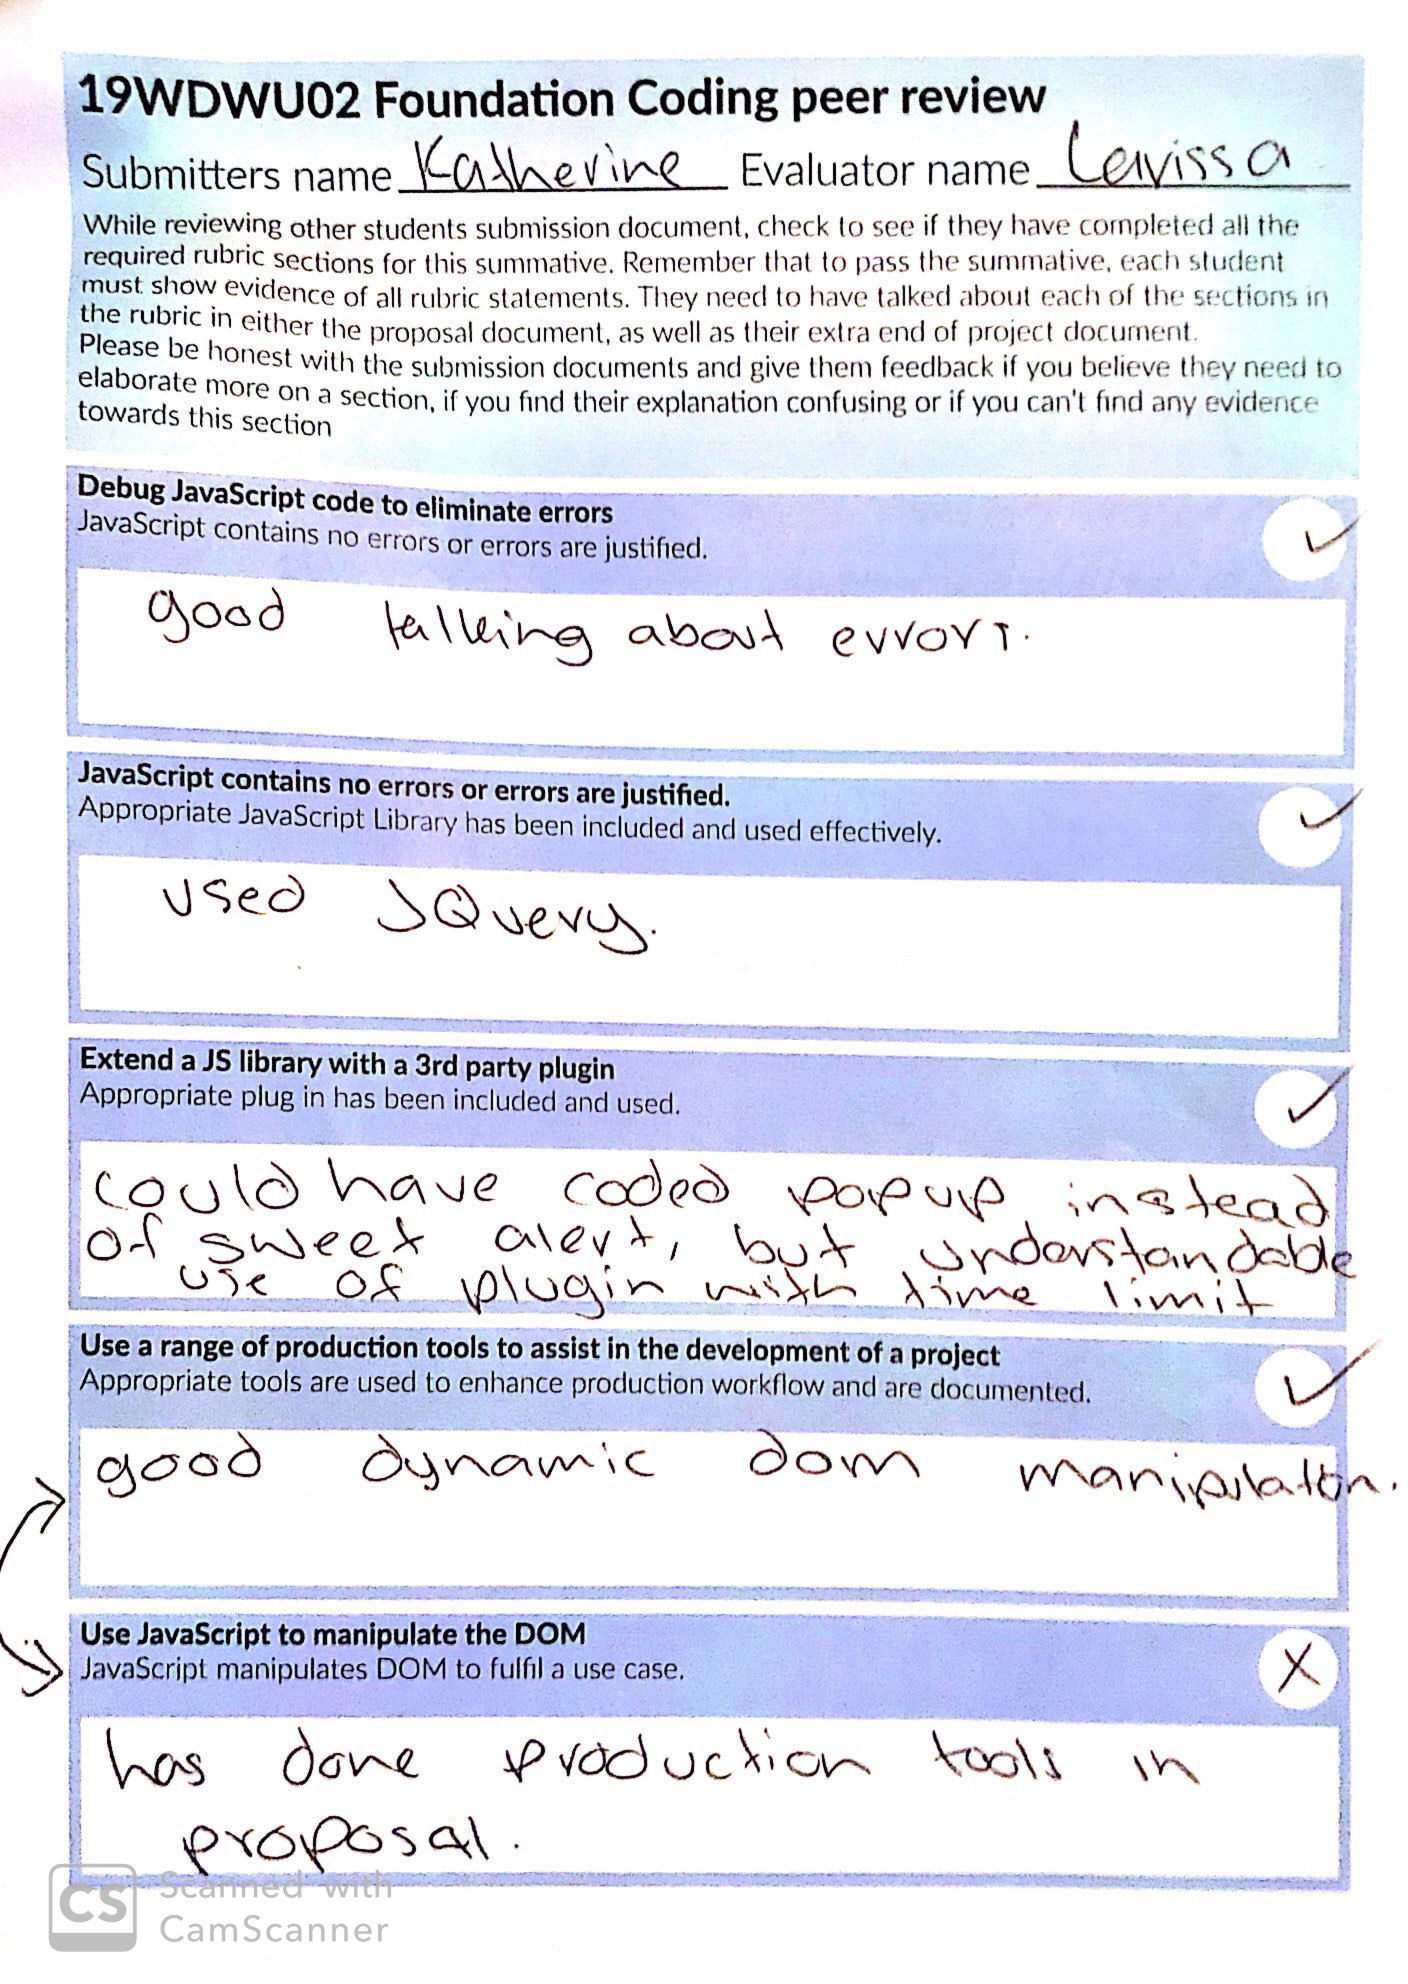 19WDWU02 Foundation Coding peer review
Submitters name Katherine Evaluator name
While reviewing other students submission document, check to see if they have completed all the
required rubric sections for this summative. Remember that to pass the summative, each student
must show evidence of all rubric statements. They need to have talked about each of the sections in
the rubric in either the proposal document, as well as their extra end of project document.
Please be honest with the submission documents and give them feedback if you believe they need to
elaborate more on a section, if you find their explanation confusing or if you can't find any evidence
towards this section
Debug JavaScript code to eliminate errors
JavaScript contains no errors or errors are justified.
good talking about errors.
JavaScript contains no errors or errors are justified.
Appropriate JavaScript Library has been included and used effectively.
used JQuery.
Extend a JS library with a 3rd party plugin
Appropriate plug in has been included and used.
could have coded popup instead
of sweet alert, but understandable
use of plugin with time limit
Use a range of production tools to assist in the development of a project
Appropriate tools are used to enhance production workflow and are documented.
good dynamic dom manipulation.
Use JavaScript to manipulate the DOM
JavaScript manipulates DOM to fulfil a use case.
X
has done production tools in
proposal.
CS Scanned with
CamScanner